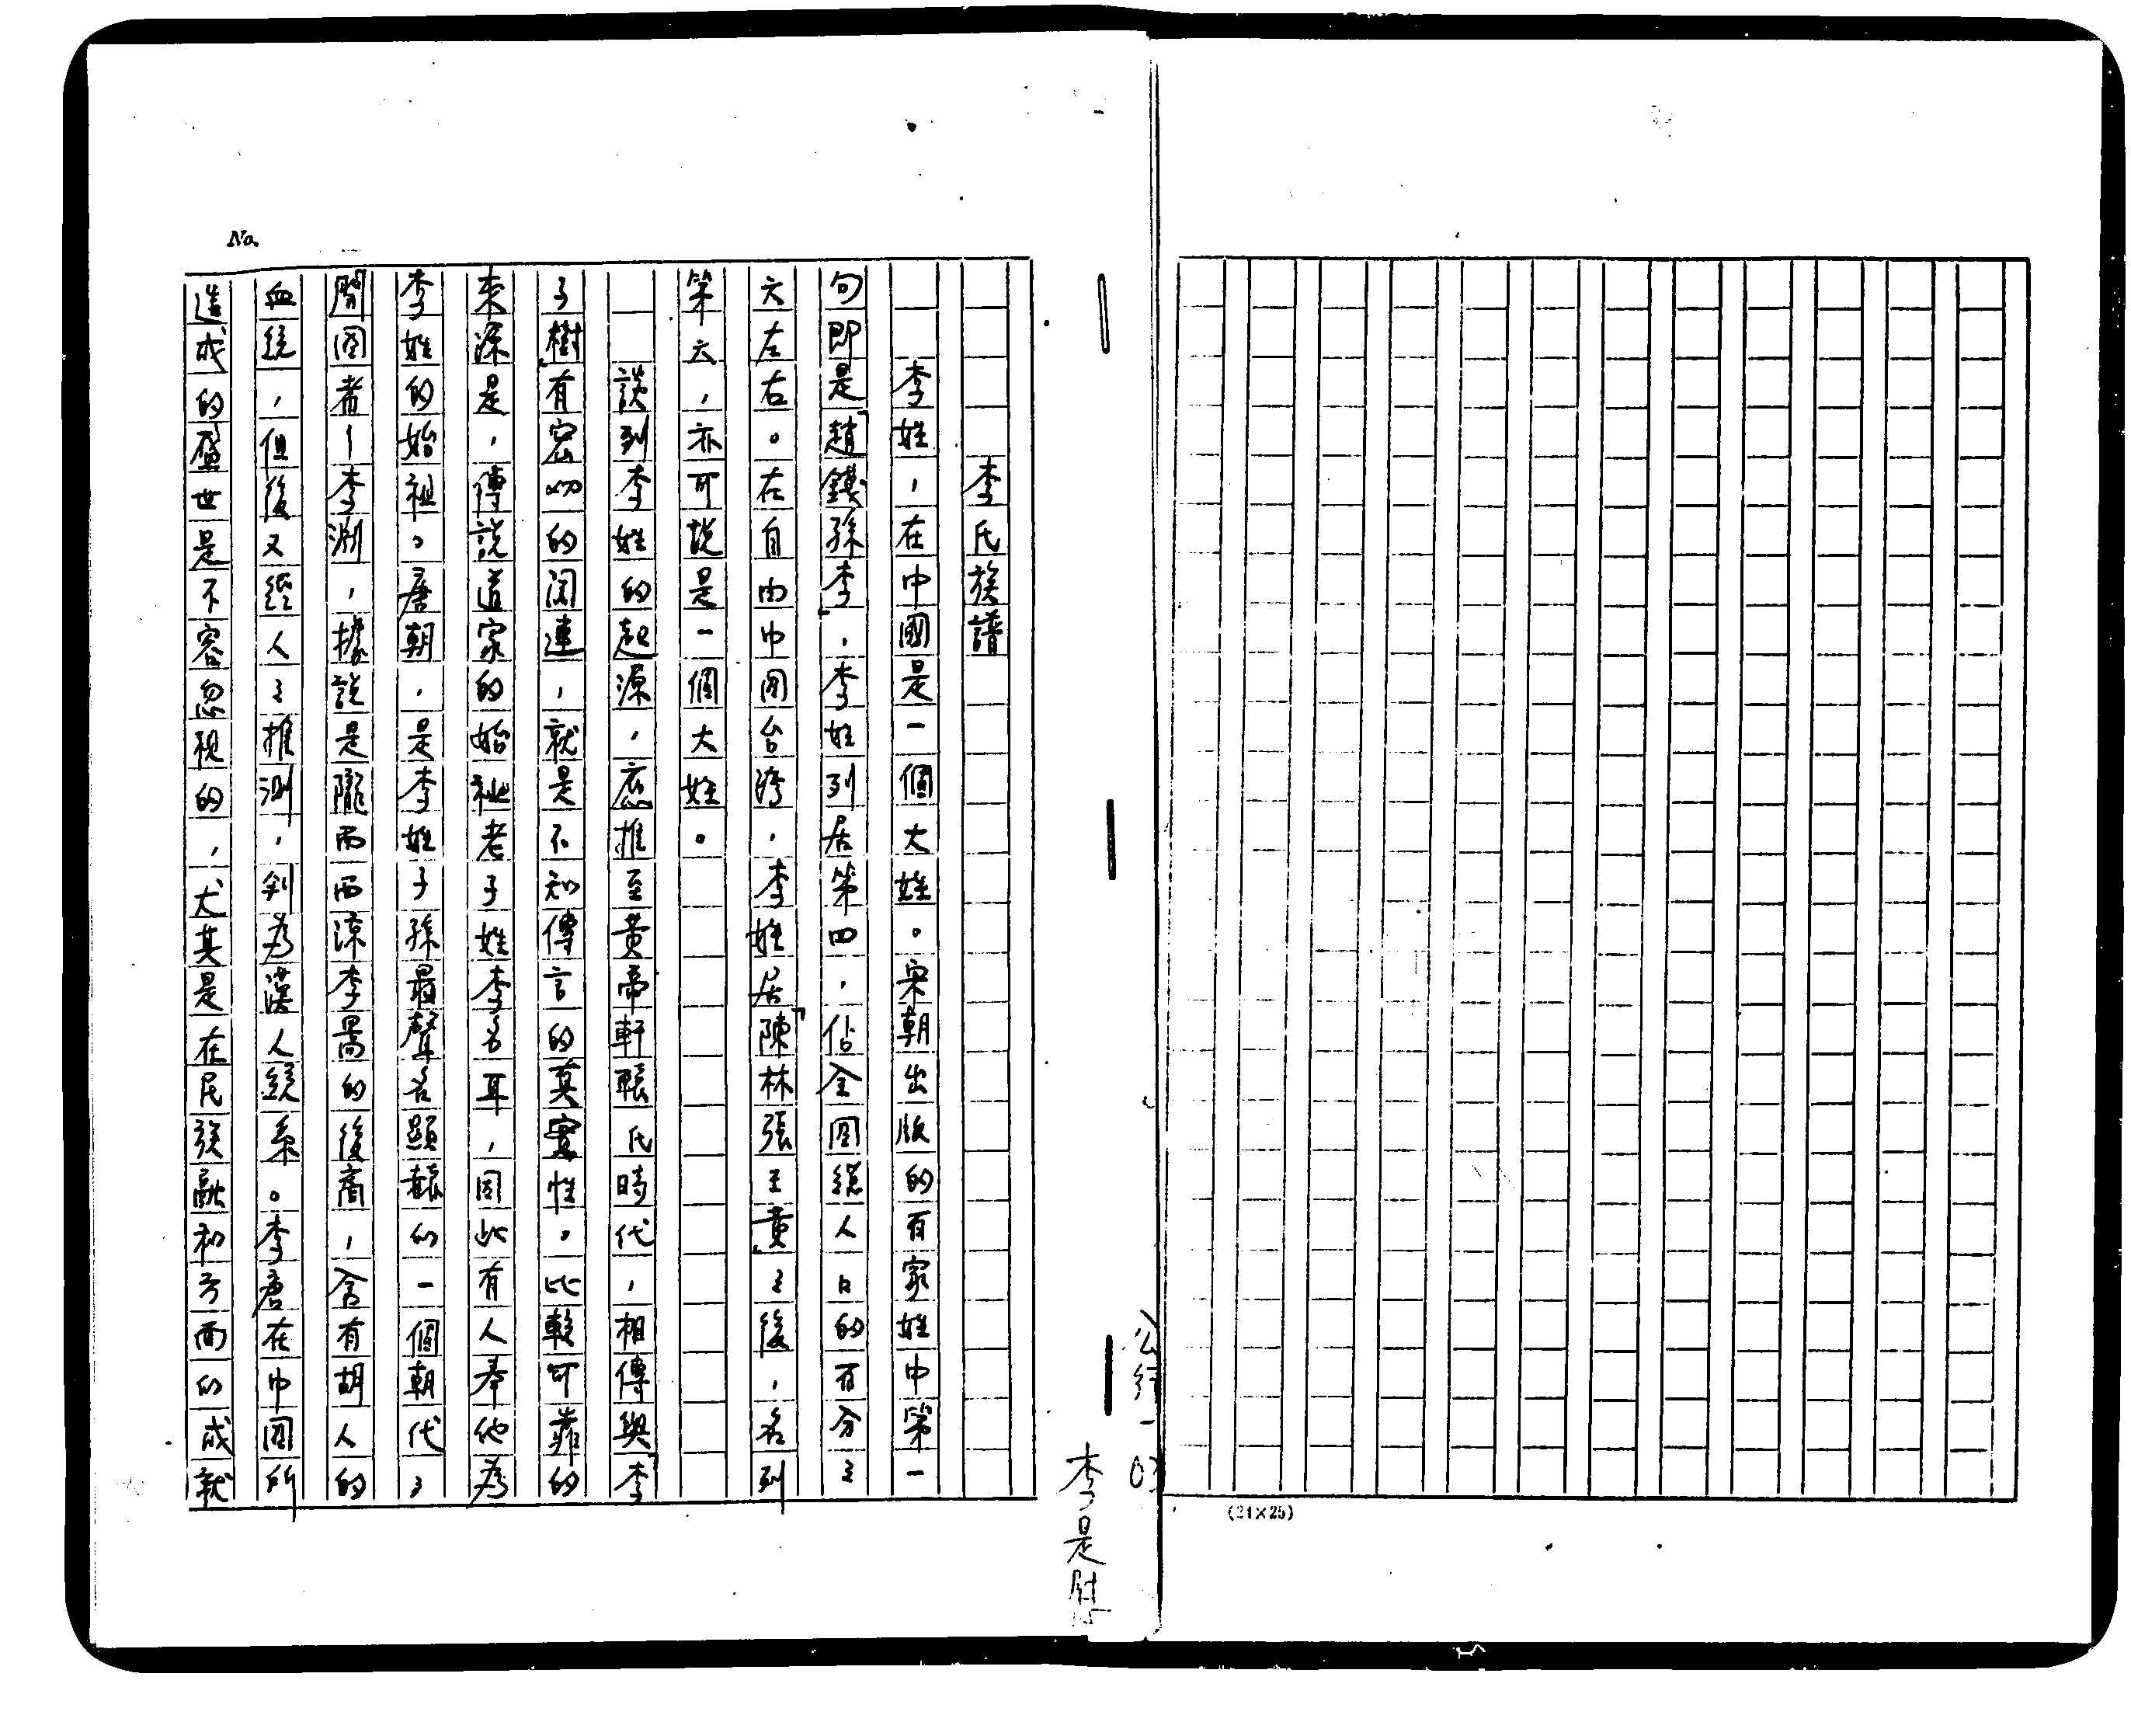 李氏族譜
李姓，在中國是一個大姓。宋朝出版的百家姓中第一
句即是「趙錢孫李」，李姓列居第四，佔全囯總人口的百分之
六左右。在自由中囯台湾，李姓居「陳林張王黄」之後，名列
第六，亦可說是一個大姓。
談到李姓的起源，應推至黄帝軒轅氏時代，相傳與「李
子樹」有密切的関連，就是不知傳言的真實性。比較可靠的
來源是，傳說道家的始祉老子姓李名耳，因此有人奉他為
李姓的始祖。唐朝，是李姓子孫最聲名顯赫的一個朝代，
開囯者—李淵，據說是隴西西涼李暠的後裔，含有胡人的
血統，但後又經人之推測，判為漢人統系。李唐在中囯所
造成的盛世是不容忽視的，尤其是在民族融和方面的成就
No.
公行一
李是慰
(21×25)